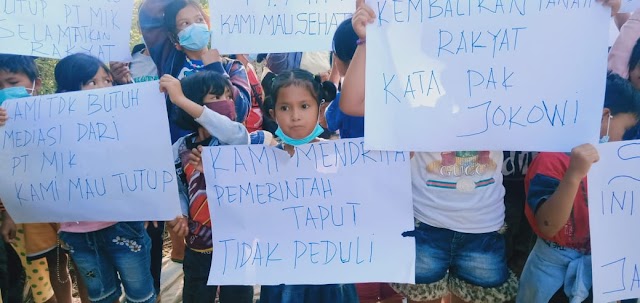 TUTUP
PT.MIK
SELAMATKAN
RAKYAT
KAMI MAU SEHAT
KEMBALIKAN TANAH
RAKYAT
KATA PAK
JOKOWI
KAMI TDK BUTUH
MEDIASI DARI
PT MIK
KAMI MAU TUTUP
KAMI MENDRITA
PEMERINTAH
TAPUT
TIDAK PEDULI
GUCCI
INI
JA